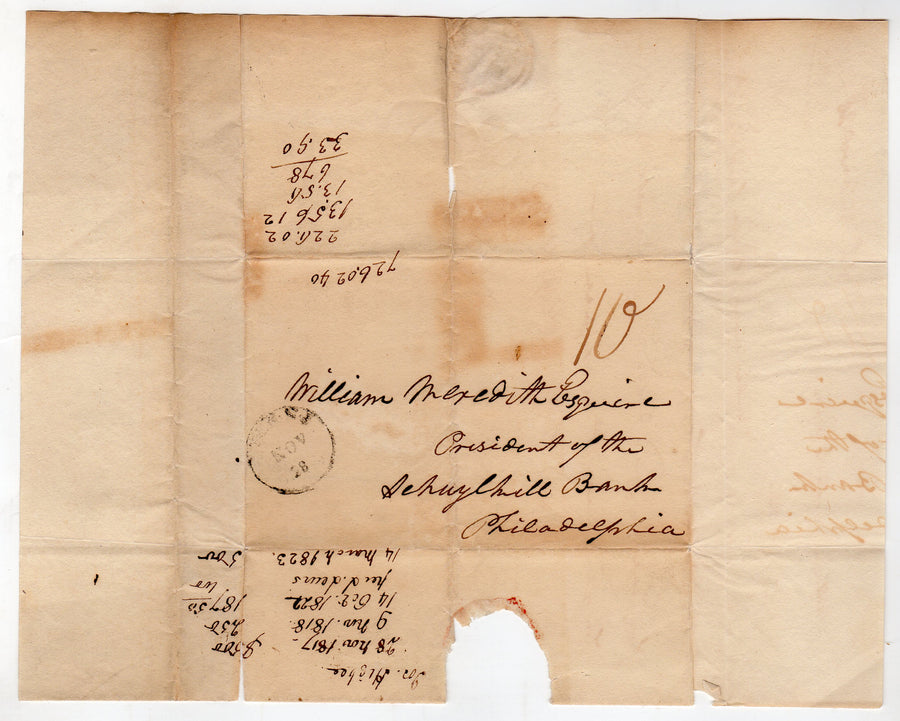 10
William Meredith Esquire
President of the
Schuylkill Bank
Philadelphia
NOV
28
7260240
226.02
13.56 12
13.56
678
33.90
Jos. Higbee
28 Nov 1817. $500
9 Nov. 1818. 250
14 Oct. 1822 18750
14 March 1823. 500